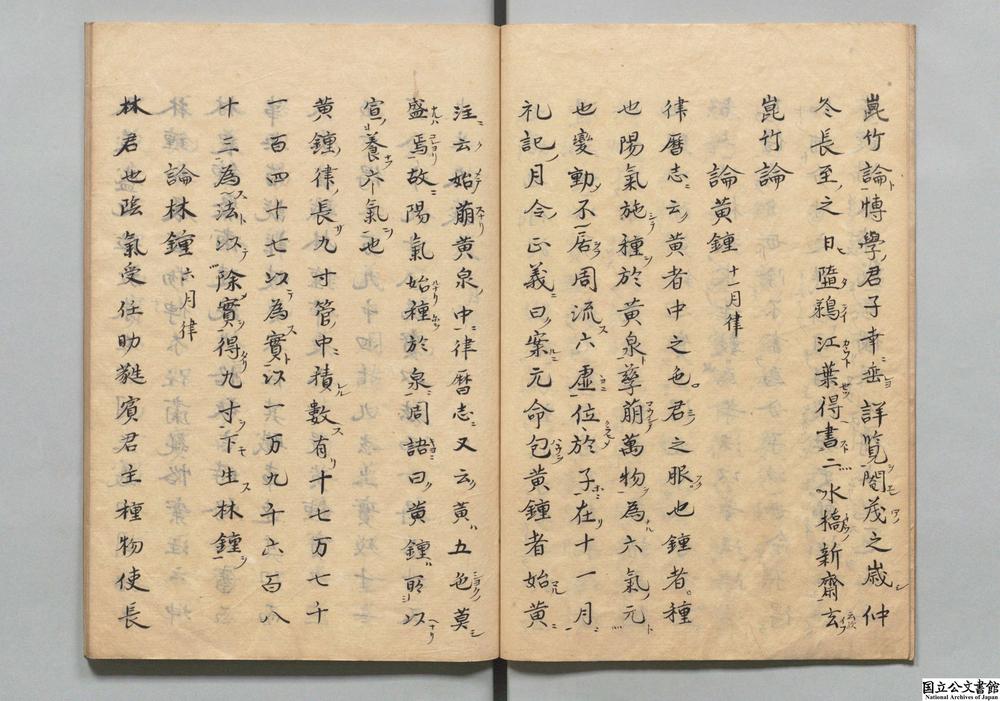 崑竹論博學君子幸垂詳覧閹茂之歳仲
冬長至之日隨鵜江葉得書二水橋新齋玄
崑竹論
論黄鐘 十一月律
律暦志云黄者中之色君之服也鐘者種
也陽氣施種於黄泉孳萠萬物為六氣元
也變動不居周流六虛位於子在十一月
礼記月令正義曰案元命包黄鐘者始黄
注云始萠黄泉中律暦志又云黄五色莫
盛焉故陽氣始種於泉周語曰黄鐘所以
宣養六氣也
黄鐘律長九寸管中積數有十七万七千
一百四十七以為實以一万九千六百八
十三為法以除實得九寸下生林鐘
論林鐘 六月律
林君也陰氣受任助蕤賓君主種物使長
国立公文書館
National Archives of Japan